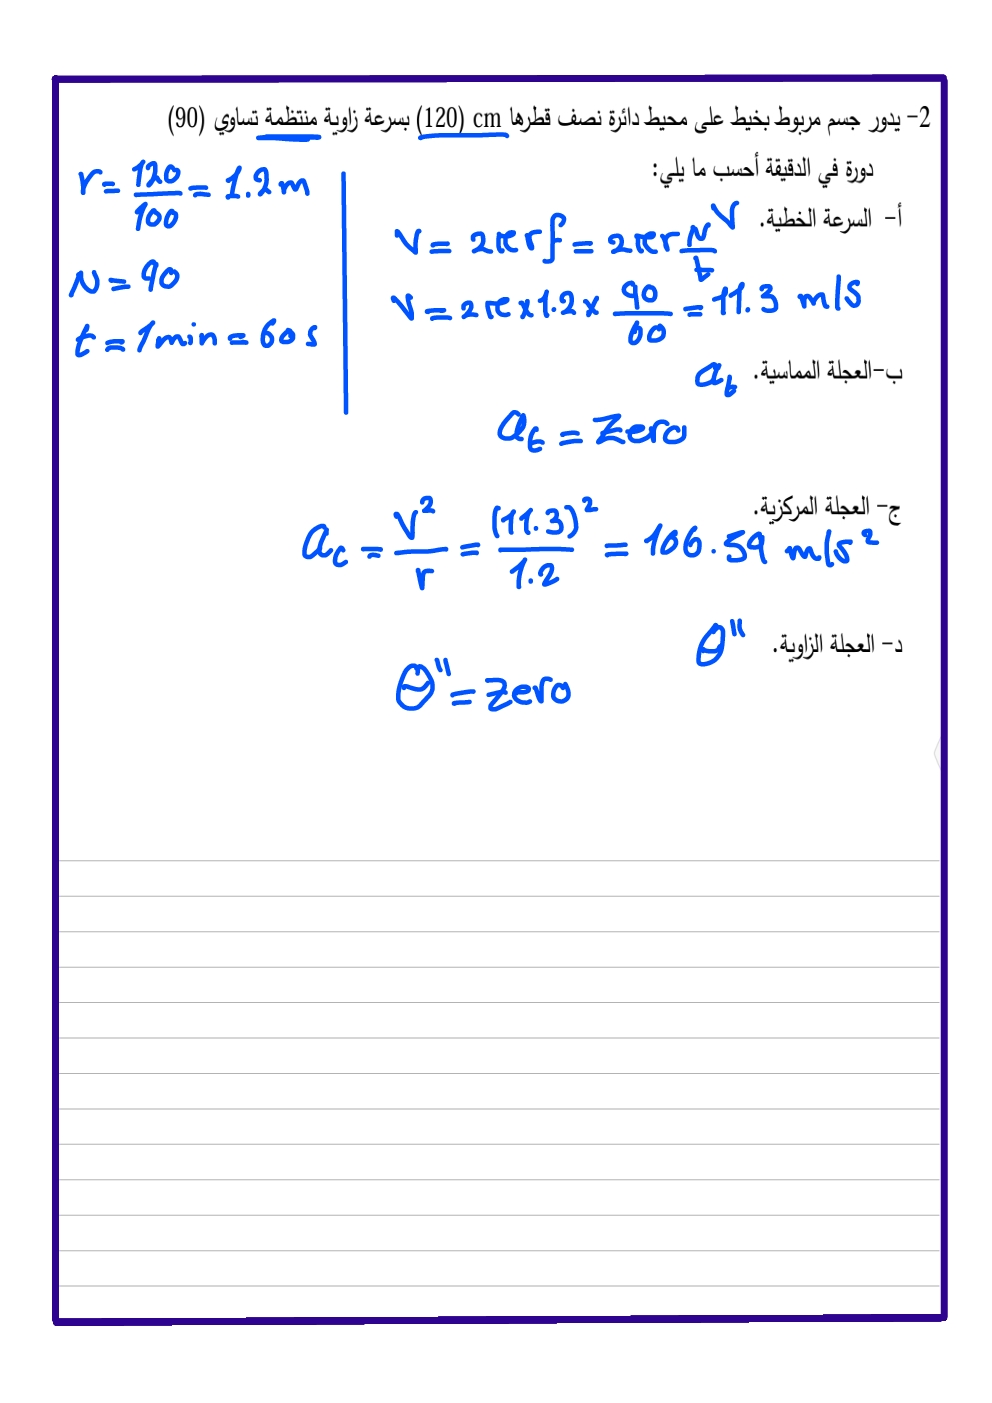 2- يدور جسم مربوط بخيط على محيط دائرة نصف قطرها cm (120) بسرعة زاوية منتظمة تساوي (90)
دورة في الدقيقة أحسب ما يلي:
r = 120/100 = 1.2 m
أ- السرعة الخطية. V
V = 2πrf = 2πr N/t
N = 90
V = 2π x 1.2 x 90/60 = 11.3 m/s
t = 1 min = 60 s
ب-العجلة المماسية. at
at = Zero
ج- العجلة المركزية.
ac = V²/r = (11.3)²/1.2 = 106.59 m/s²
د- العجلة الزاوية. θ"
θ" = zero